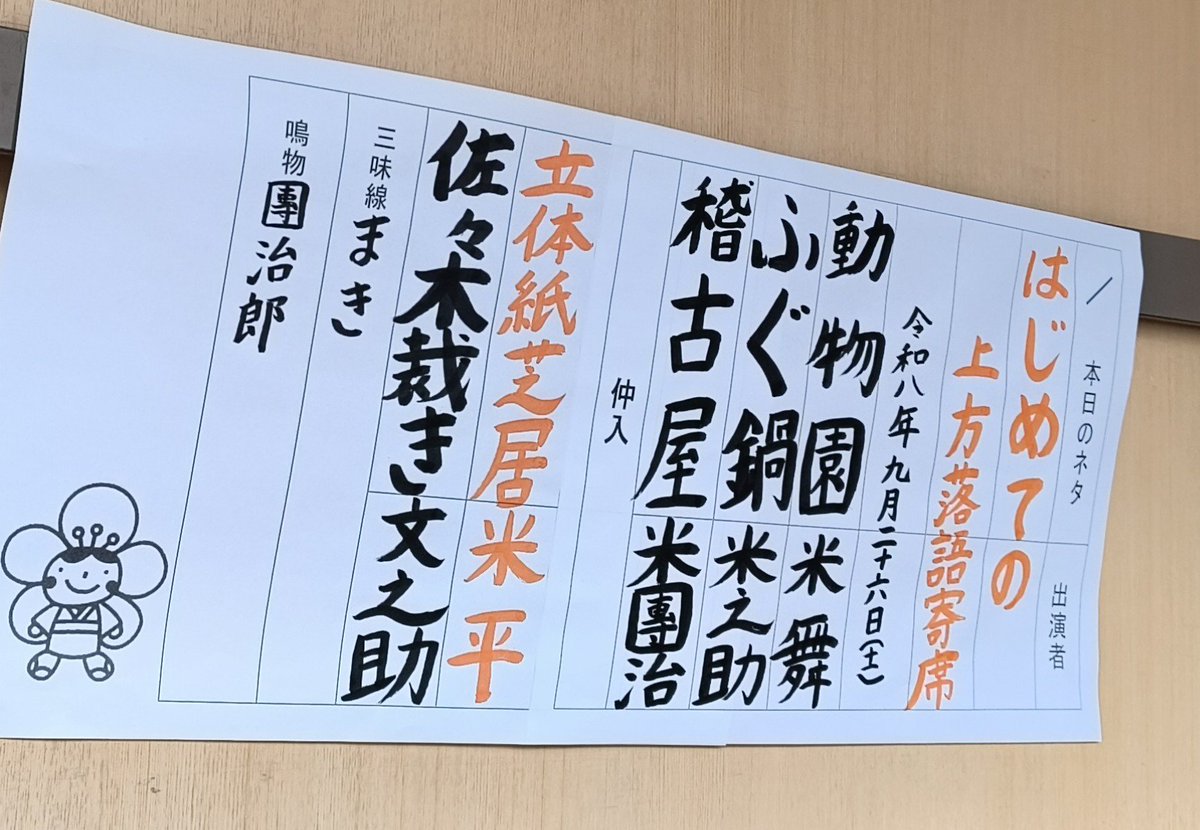 本日のネタ 出演者
はじめての
上方落語寄席
令和八年九月二十六日(土)
動物園 米舞
ふぐ鍋 米之助
稽古屋 米團治
仲入
立体紙芝居 米平
佐々木裁き 文之助
三味線 まき
鳴物 團治郎